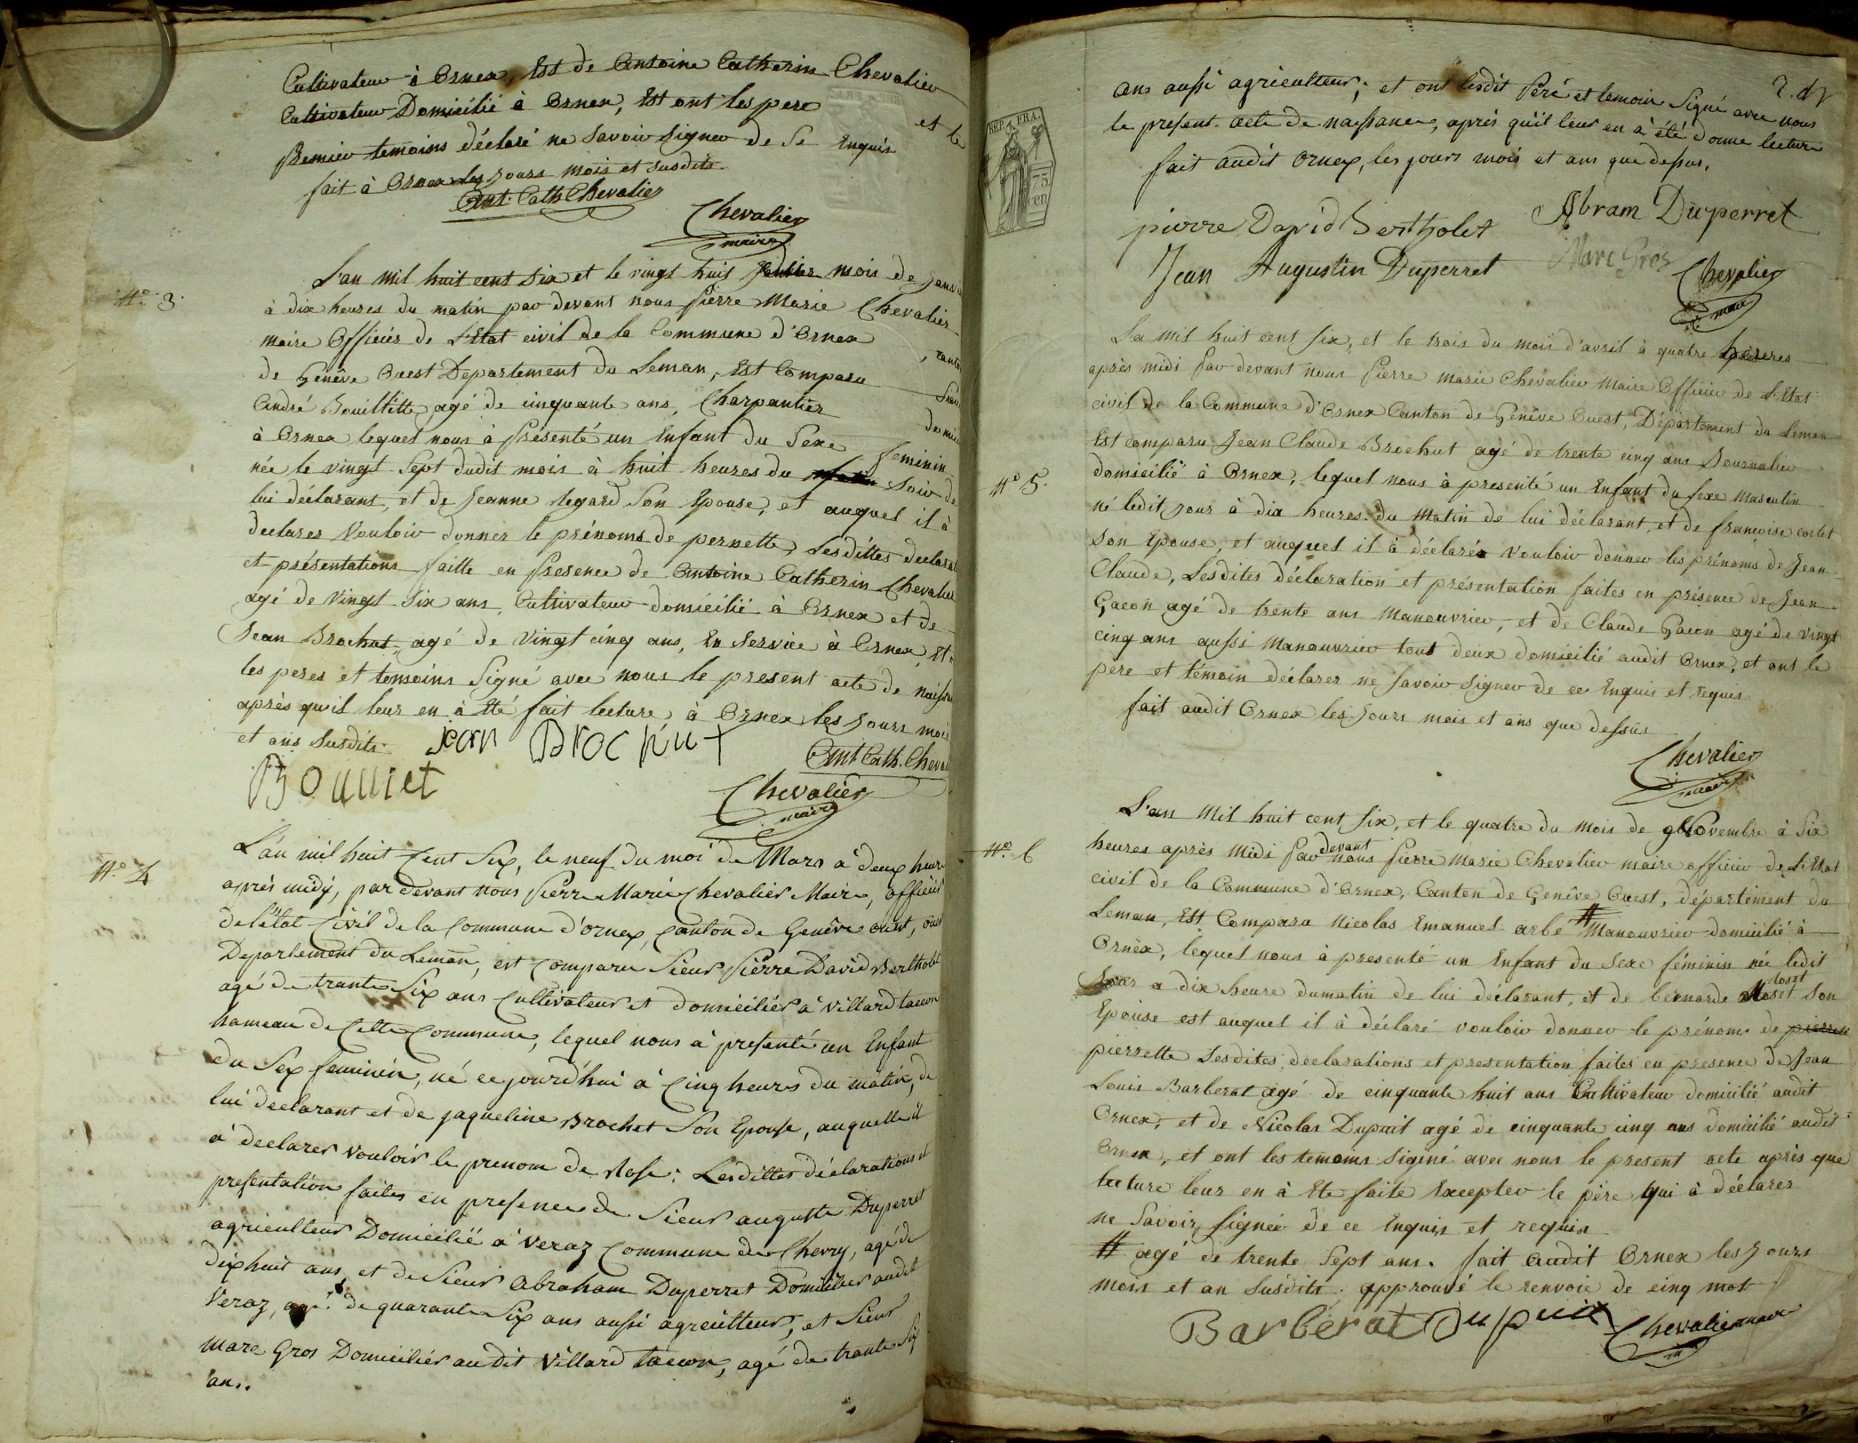 Cultivateur à Ornex, Est de Antoine Catherin Chevalier
Cultivateur Domicilié à Ornex, Est ont les pere et le
Premier temoins déclaré ne Savoir Signer de Se Enquis
fait à Ornex les Jours mois et susdits
Ant. Cath. Chevalier
Chevalier
maire
N.º 3.
L'an mil huit cent Six et le vingt huit mois de Janvi
à dix heures du matin par devant nous Pierre Marie Chevalier
maire Officiér de L'Etat civil de la Commune d'Ornex
de Genêve Ouest Departement du Leman, Est Comparu
André Bouillette agé de cinquante ans, Charpantier
à Ornex lequel nous à Présenté un Enfant du Sexe feminin
née le vingt Sept dudit mois à huit heures du matin Soir de
lui déclarant, et de Jeanne Regard Son Epouse, et auquel il à
declarer Vouloir donner le prénoms de pernette, Lesdittes declarat
et présentations faitte en Presence de Antoine Catherin Chevalier
agé de Vingt Six ans, Cultivateur domicilié à Ornex et de
Jean Brochut, agé de Vingt cinq ans, En Service à Ornex, Et
les peres et temoins Signé avec nous le present acte de naissa
après qu'il leur en à Eté fait lecture à Ornex les Jours mois
et ans Susdits. jean Brochut
Ant Cath. Cheval
Bouuiet
Chevalier
maire
N.º 4
L'an mil huit Cent Six, le neuf du moi de Mars à deux heure
après midy, par devant nous Pierre Marie Chevalier Maire, officié
de l'état Civil de la Commune d'ornex, Canton de Genêve ouest,
Departement du Leman, est Comparu Sieur Pierre David Bertholet
agé de trante Six ans Cultivateur et domiciliér à Villard tacon
hameau de Cette Commune, lequel nous à presenté un Enfant
du Sex feminin, né ce jourd'hui à Cinq heurs du matin, de
lui declarant et de jaqueline Brochet Son Epouse, auquelle il
à declarer Vouloir le prenom de Rose; Lesdittes déclarations et
presentation faites en presence de Sieur auguste Duperret
agriculteur Domicilié à Veraz Commune de Chevry, agé de
dixhuit ans, et de Sieur Abraham Duperret Domicilier audit
Veraz, agé de quarante Six ans aussi agriculteur, et Sieur
marc Gros Domiciliér au dit Villard tacon, agé de trante Six
ans.
ans aussi agriculteur; et ont lesdit Péré et temoin Signé avec nous
le present acte de naissance, après qu'il leur en à été donné lecture
fait audit Ornex, les jours mois et ans que dessus.
REP. FRA.
75
cen
pierre David Bertholet
Abram Duperret
Jean Augustin Duperret
Marc Gros
Chevalier
maire
La mil huit cent Six, et le trois du mois d'avril à quatre heures
après midi Par devant nous Pierre Marie Chevalier Maire Officier de L'Etat
civil de la Commune d'Ornex Canton de Genêve Ouest, Département du Leman
Est comparu Jean Claude Brochut agé de trente cinq ans Journalier
N.º 5.
domicilié à Ornex, lequel nous à presenté un Enfant du Sexe Masculin
né ledit jour à dix heures du Matin de lui déclarant et de francoise corlet
Son Epouse, et auquel il à déclarér Vouloir donner les prénoms de Jean
Claude, Lesdites déclaration et présentation faites en présence de Jean
Gacon agé de trente ans Manouvrier, et de Claude Gacon agé de Vingt
cinq ans aussi Manouvrier tout deux domicilié audit Ornex, et ont le
père et témoin déclarer ne Savoir Signer de ce Enquis et requis
fait audit Ornex les Jours mois et ans que dessus
Chevalier
maire
N.º 6
L'an Mil huit cent Six, et le quatre du mois de Novembre à Six
heures après midi Par devant nous Pierre Marie Chevalier maire officier de L'Etat
civil de la Commune d'Ornex, Canton de Genêve Ouest, département du
Leman, Est Comparu Nicolas Emanuel arbé # Manouvrier domicilié à
Ornex, lequel nous à presenté un Enfant du Sexe féminin née ledit
Jour a dix heure dumatin de lui declarant, et de bernarde Moset loset Son
Epouse est auquel il à déclaré vouloir donner le prénom de pierre
pierrette Lesdites declarations et presentation faites en presence de Jean
Louis Barberat agé de cinquante huit ans Cultivateur domicilié audit
Ornex, et de Nicolas Dupuit agé de cinquante cinq ans domicilié audit
Ornex, et ont les temoins Signé avec nous le present acte après que
lecture leur en à Ete faite Excepter le père qui à déclarer
ne Savoir Signée de ce Enquis et requis
# agé de trente Sept ans. fait audit Ornex les Jours
mois et an Susdits. approuvé le renvoie de cinq mot
Barberat Dupuit
Chevalier maire